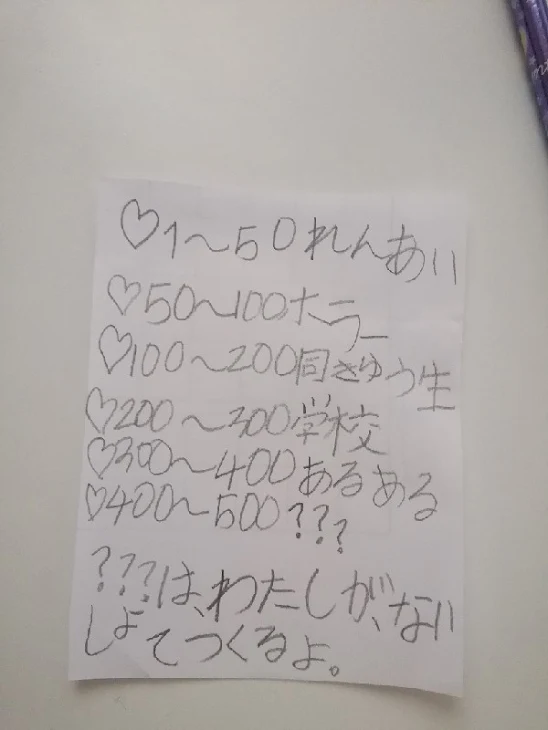 ♡1〜50れんあい
♡50〜100ホラー
♡100〜200同きゅう生
♡200〜300学校
♡300〜400あるある
♡400〜500???
???は、わたしが、ない
しょてつくるよ。